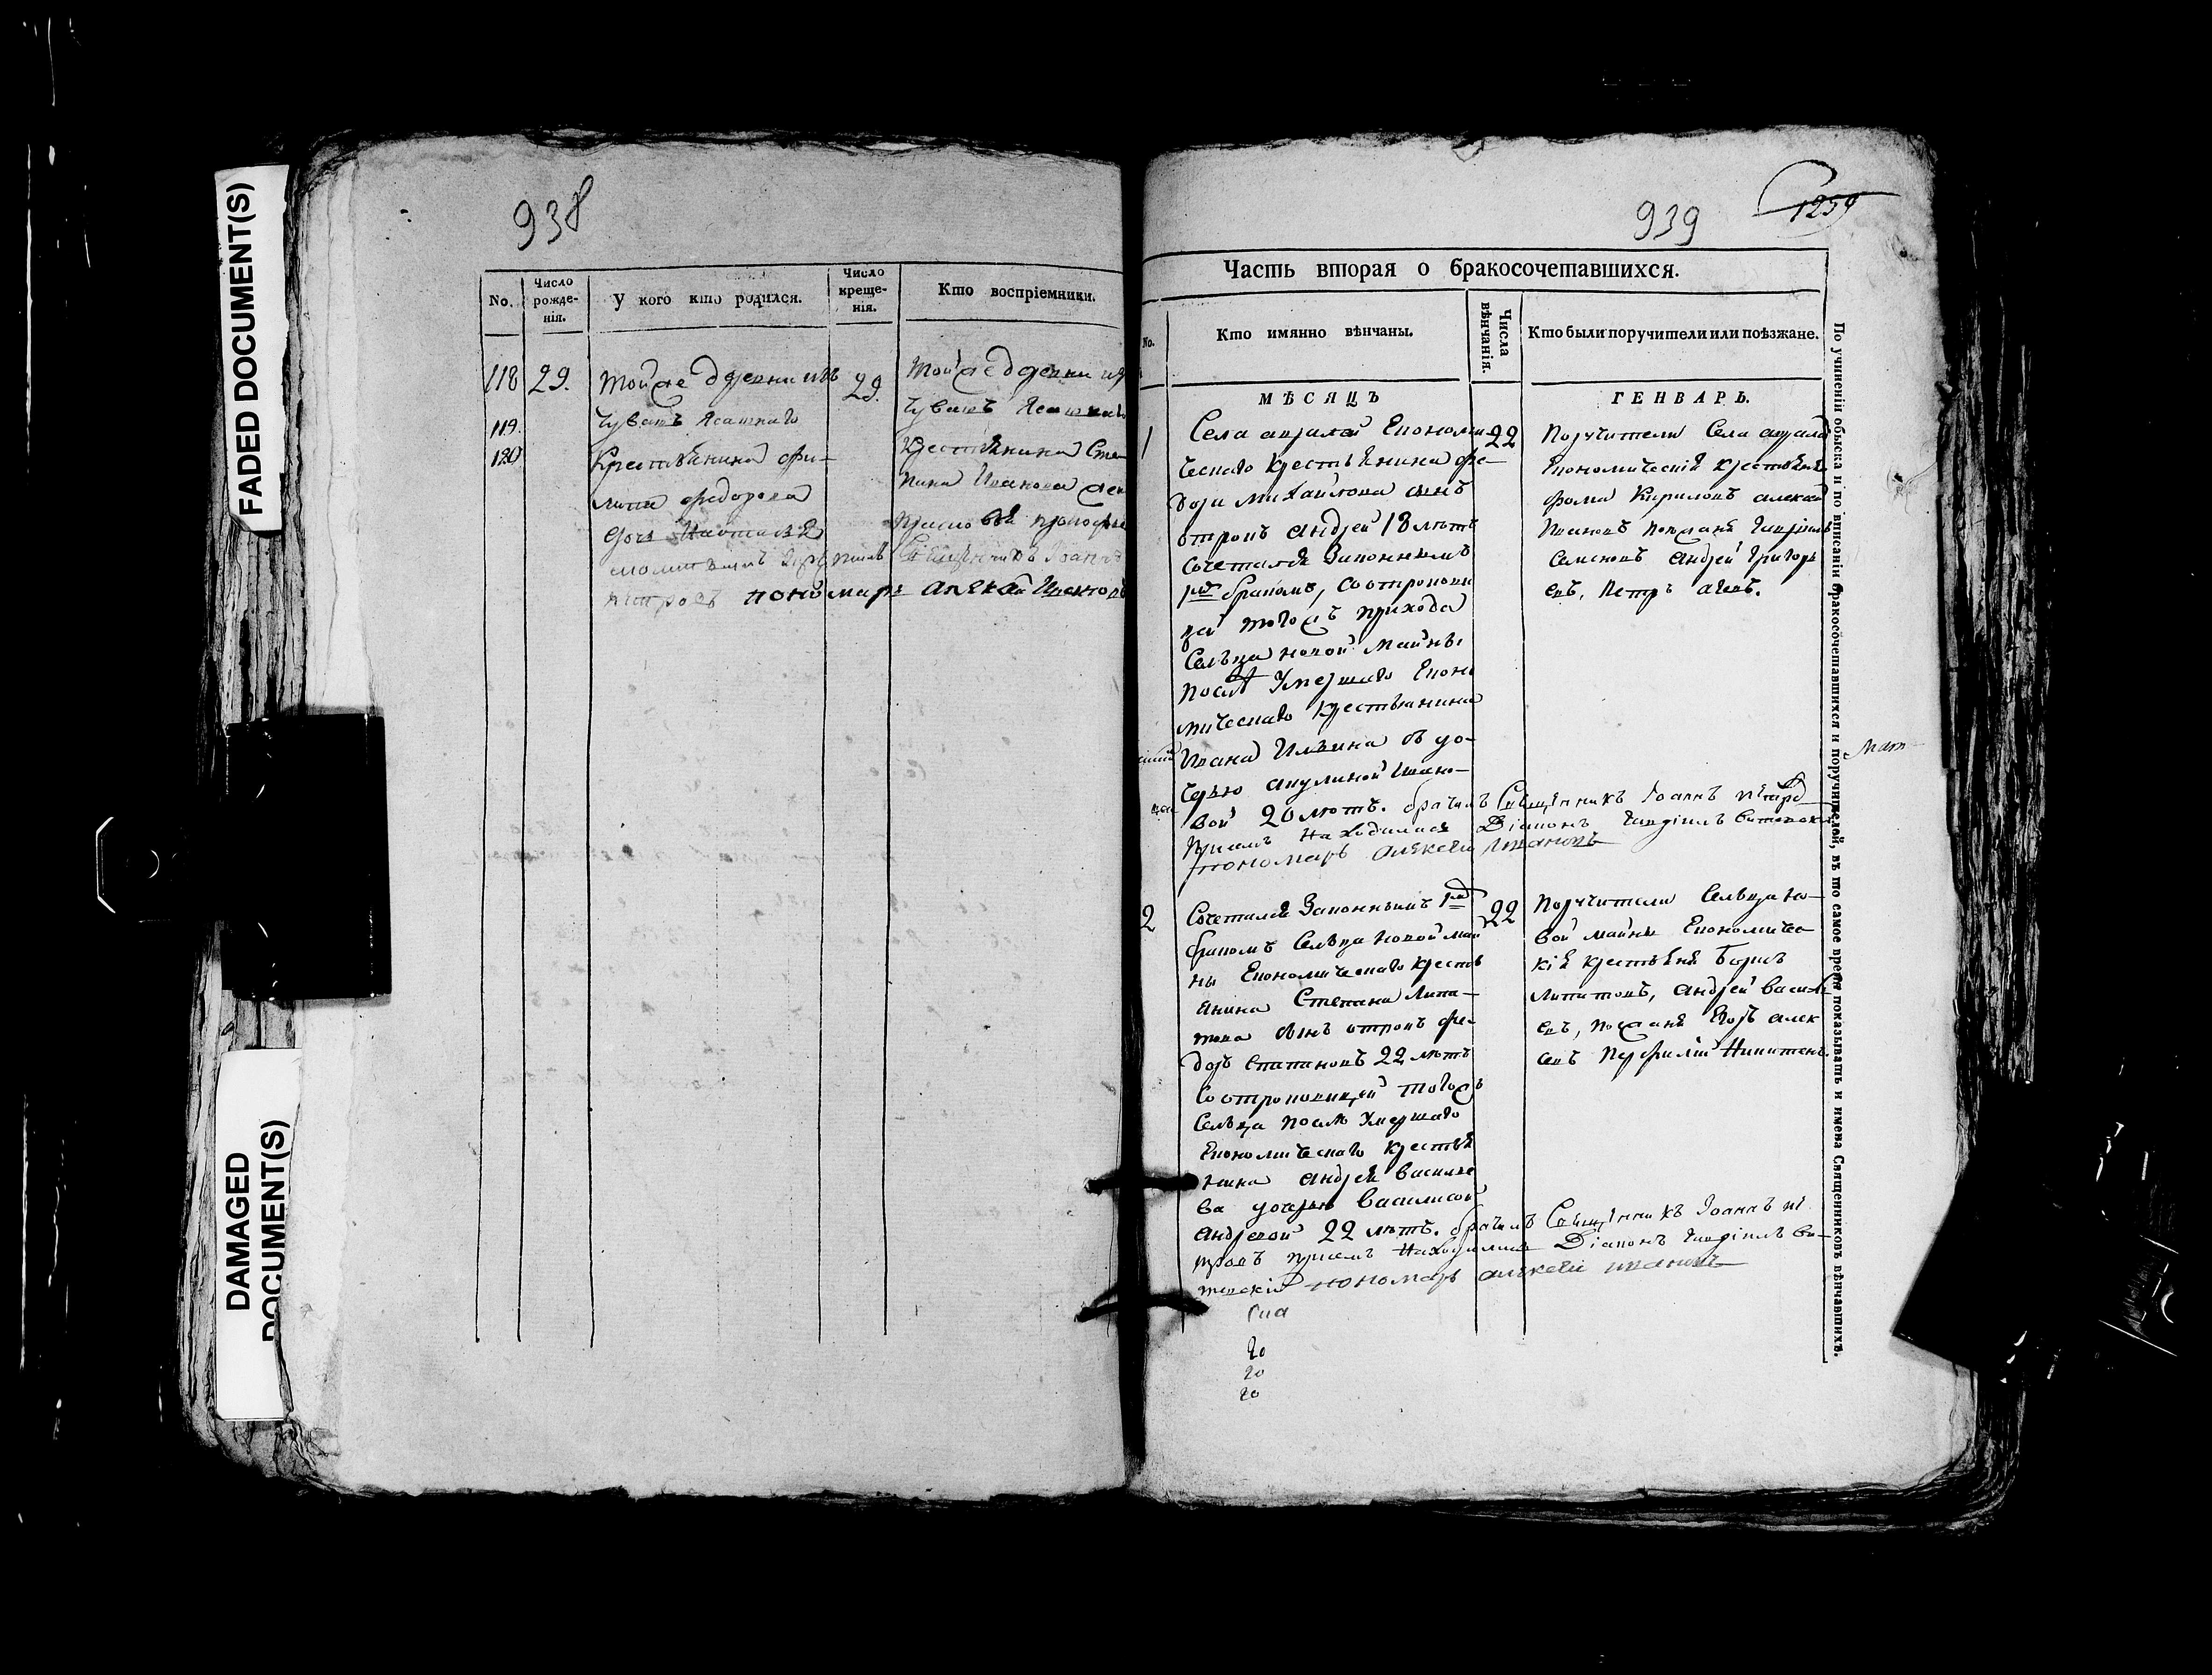 FADED DOCUMENT(S)
DAMAGED
DOCUMENT(S)
938
No.
Число
рожде-
нія.
У кого кто родился.
Число
креще-
нія.
Кто воспріемники.
118
29.
119.
120
Тойже деревни изъ
Чувашъ Ясашнаго
Крестьянина Фи-
липа Федорова
дочь
молитвилъ
29.
Тойже деревни
Чувашъ
Крестьянина Сте
пана Иванова жен
Священникъ Іоаннъ
Петровъ пономарь Алексѣй Ивановъ
939
1259
Часть вторая о бракосочетавшихся.
No.
Кто имянно вѣнчаны.
Числа
вѣнчанія.
Кто были поручители или поѣзжане.
МѢСЯЦЪ
ГЕНВАРЬ.
1
Села Економи
ческаго крестьянина Фе-
дора Михайлова сынъ
отрокъ Андрей 18 лѣтъ
сочетался законнымъ
1мъ бракомъ, соотрокови
цей тогожъ прихода
Сельца новой Майны
послѣ умершаго Еконо
мическаго крестьянина
Ивана Ильина съ до-
черью Акулиной Ивано-
вой 20 лѣтъ. брачилъ Священникъ Іоаннъ Петро
присемъ находились Діаконъ Гавріилъ
пономарь Алексѣй Ивановъ
22
Поручители Села
Економическія крестьяня
Фома Кириловъ Алексѣй
Ивановъ поезжаня Гавріилъ
Семеновъ Андрей Григорь
евъ, Петръ
Мат
2
Сочетался законнымъ 1мъ
бракомъ Сельца новой Май
ны Економическаго кресть
янина Степана Липа-
това сынъ отрокъ Фе-
доръ Степановъ 22 лѣтъ
соотроковицей тогожъ
Сельца послѣ умершаго
Економическаго крестья
нина Андрея Василье
ва дочерью Василисой
Андревой 22 лѣтъ. брачилъ Священникъ Іоаннъ Пе
тровъ присемъ находились Діаконъ Гавріилъ
пономарь Алексѣй Ивановъ
22
Поручители Сельца но-
вой Майны Економичес
кія крестьяня Борисъ
Липатовъ, Андрей Василь
евъ, поезжаня Егоръ Алек
сѣевъ Перфилій Никитинъ.
20
20
20
По учиненіи обыска и по вписаніи бракосочетавшихся и поручителей, въ то самое время показывать и имена Священниковъ вѣнчавшихъ.